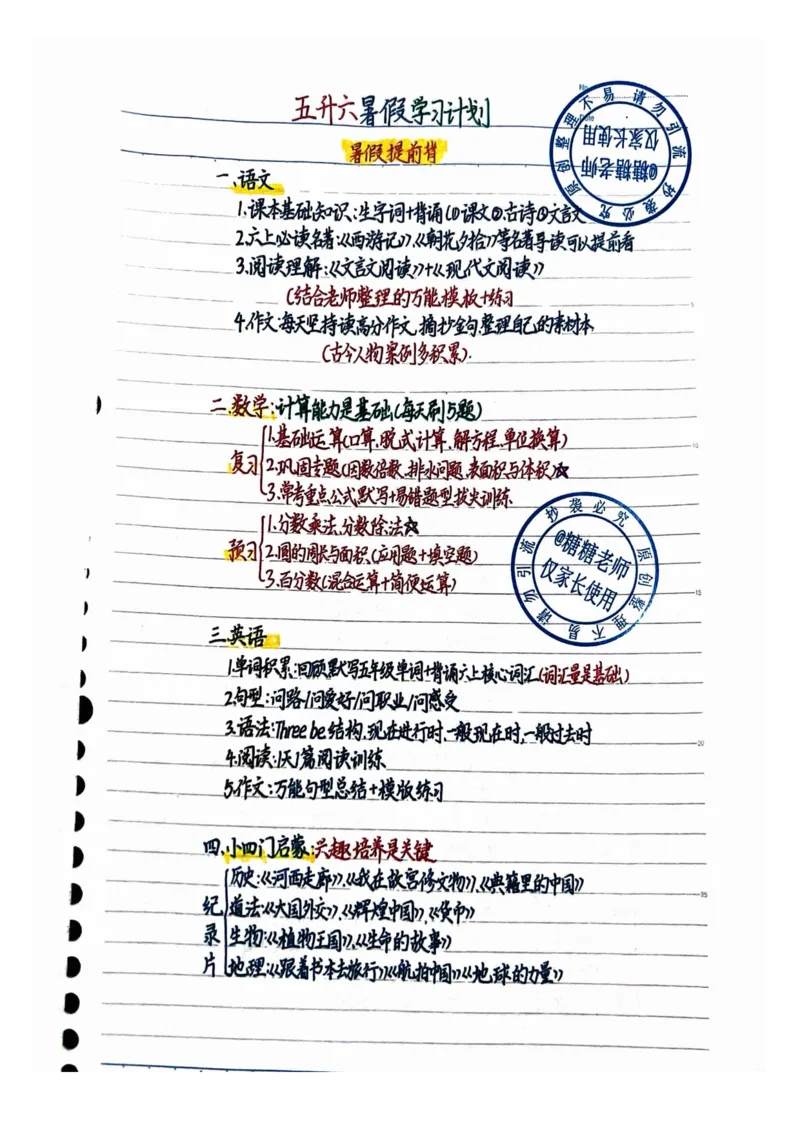 五升六暑假学习计划
暑假提前背
一、语文
1.课本基础知识:生字词+背诵(①课文②古诗③文言文
2.六上必读名著:《西游记》,《朝花夕拾》等名著导读可以提前看
3.阅读理解:《文言文阅读》+《现代文阅读》
(结合老师整理的万能模板+练习
4.作文:每天坚持读高分作文,摘抄金句,整理自己的素材本
(古今人物案例多积累).
二.数学:计算能力是基础(每天刷5题)
复习
1.基础运算(口算,脱式计算,解方程,单位换算)
2.巩固专题(因数倍数,排水问题,表面积与体积)☆
3.常考重点公式默写+易错题型拔尖训练
预习
1.分数乘法,分数除法☆
2.圆的周长与面积(应用题+填空题)
3.百分数(混合运算+简便运算)
三.英语
1.单词积累:回顾默写五年级单词+背诵六上核心词汇(词汇量是基础)
2.句型:问路/问爱好/问职业/问感受
3.语法:Three be结构,现在进行时,一般现在时,一般过去时
4.阅读:1天1篇阅读训练
5.作文:万能句型总结+模版练习
四.小四门启蒙:兴趣培养是关键
纪录片
历史:《河西走廊》,《我在故宫修文物》,《典籍里的中国》
道法:《大国外交》,《辉煌中国》,《货币》
生物:《植物王国》,《生命的故事》
地理:《跟着书本去旅行》《航拍中国》《地球的力量》
原创整理不易 请勿引流 抄袭必究
@糖糖老师
仅家长使用
原创整理不易 请勿引流 抄袭必究
@糖糖老师
仅家长使用